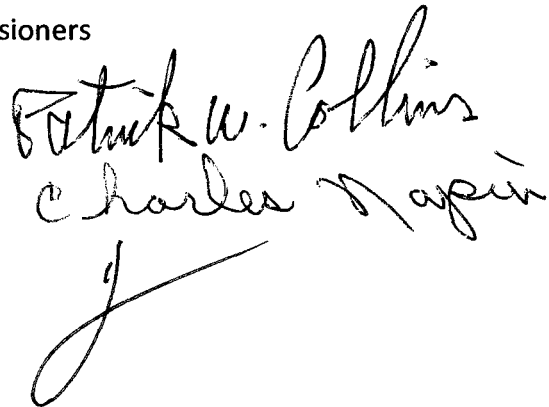 sioners
Patrick W. Collins
Charles Napin